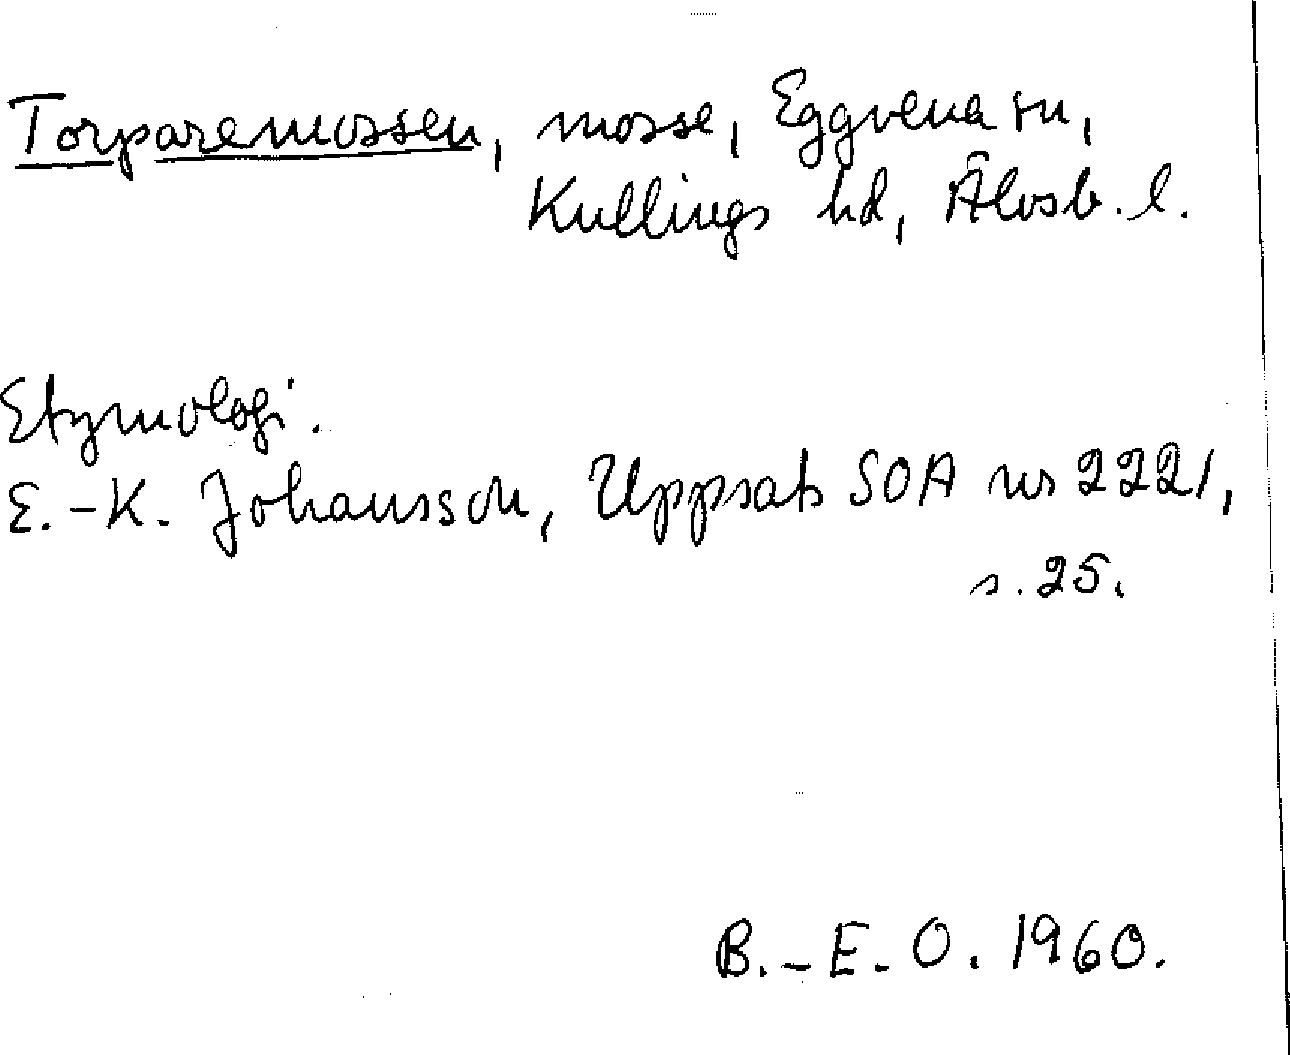 Torparemossen, mosse, Eggvena sn,
Kullings hd, Älvsb. l.
Etymologi.
E.-K. Johansson, Uppsats SOA nr 2221,
s. 25.
B.-E. O. 1960.